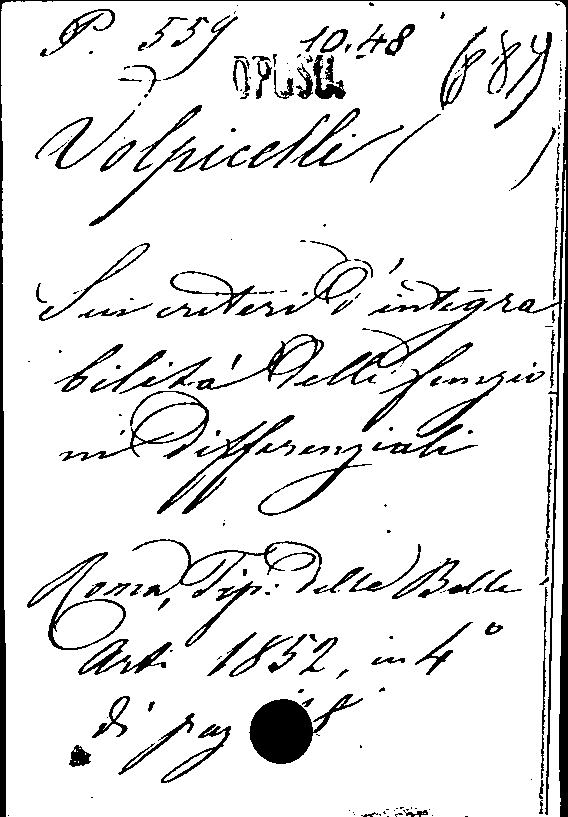 P. 559 10.48
OPUSC. (884
Volpicelli ( )
Sui criteri d'integra
bilitá delle funzio
ni differenziali
Roma, Tip: delle Belle
Arti 1852, in 4º
di pag 8